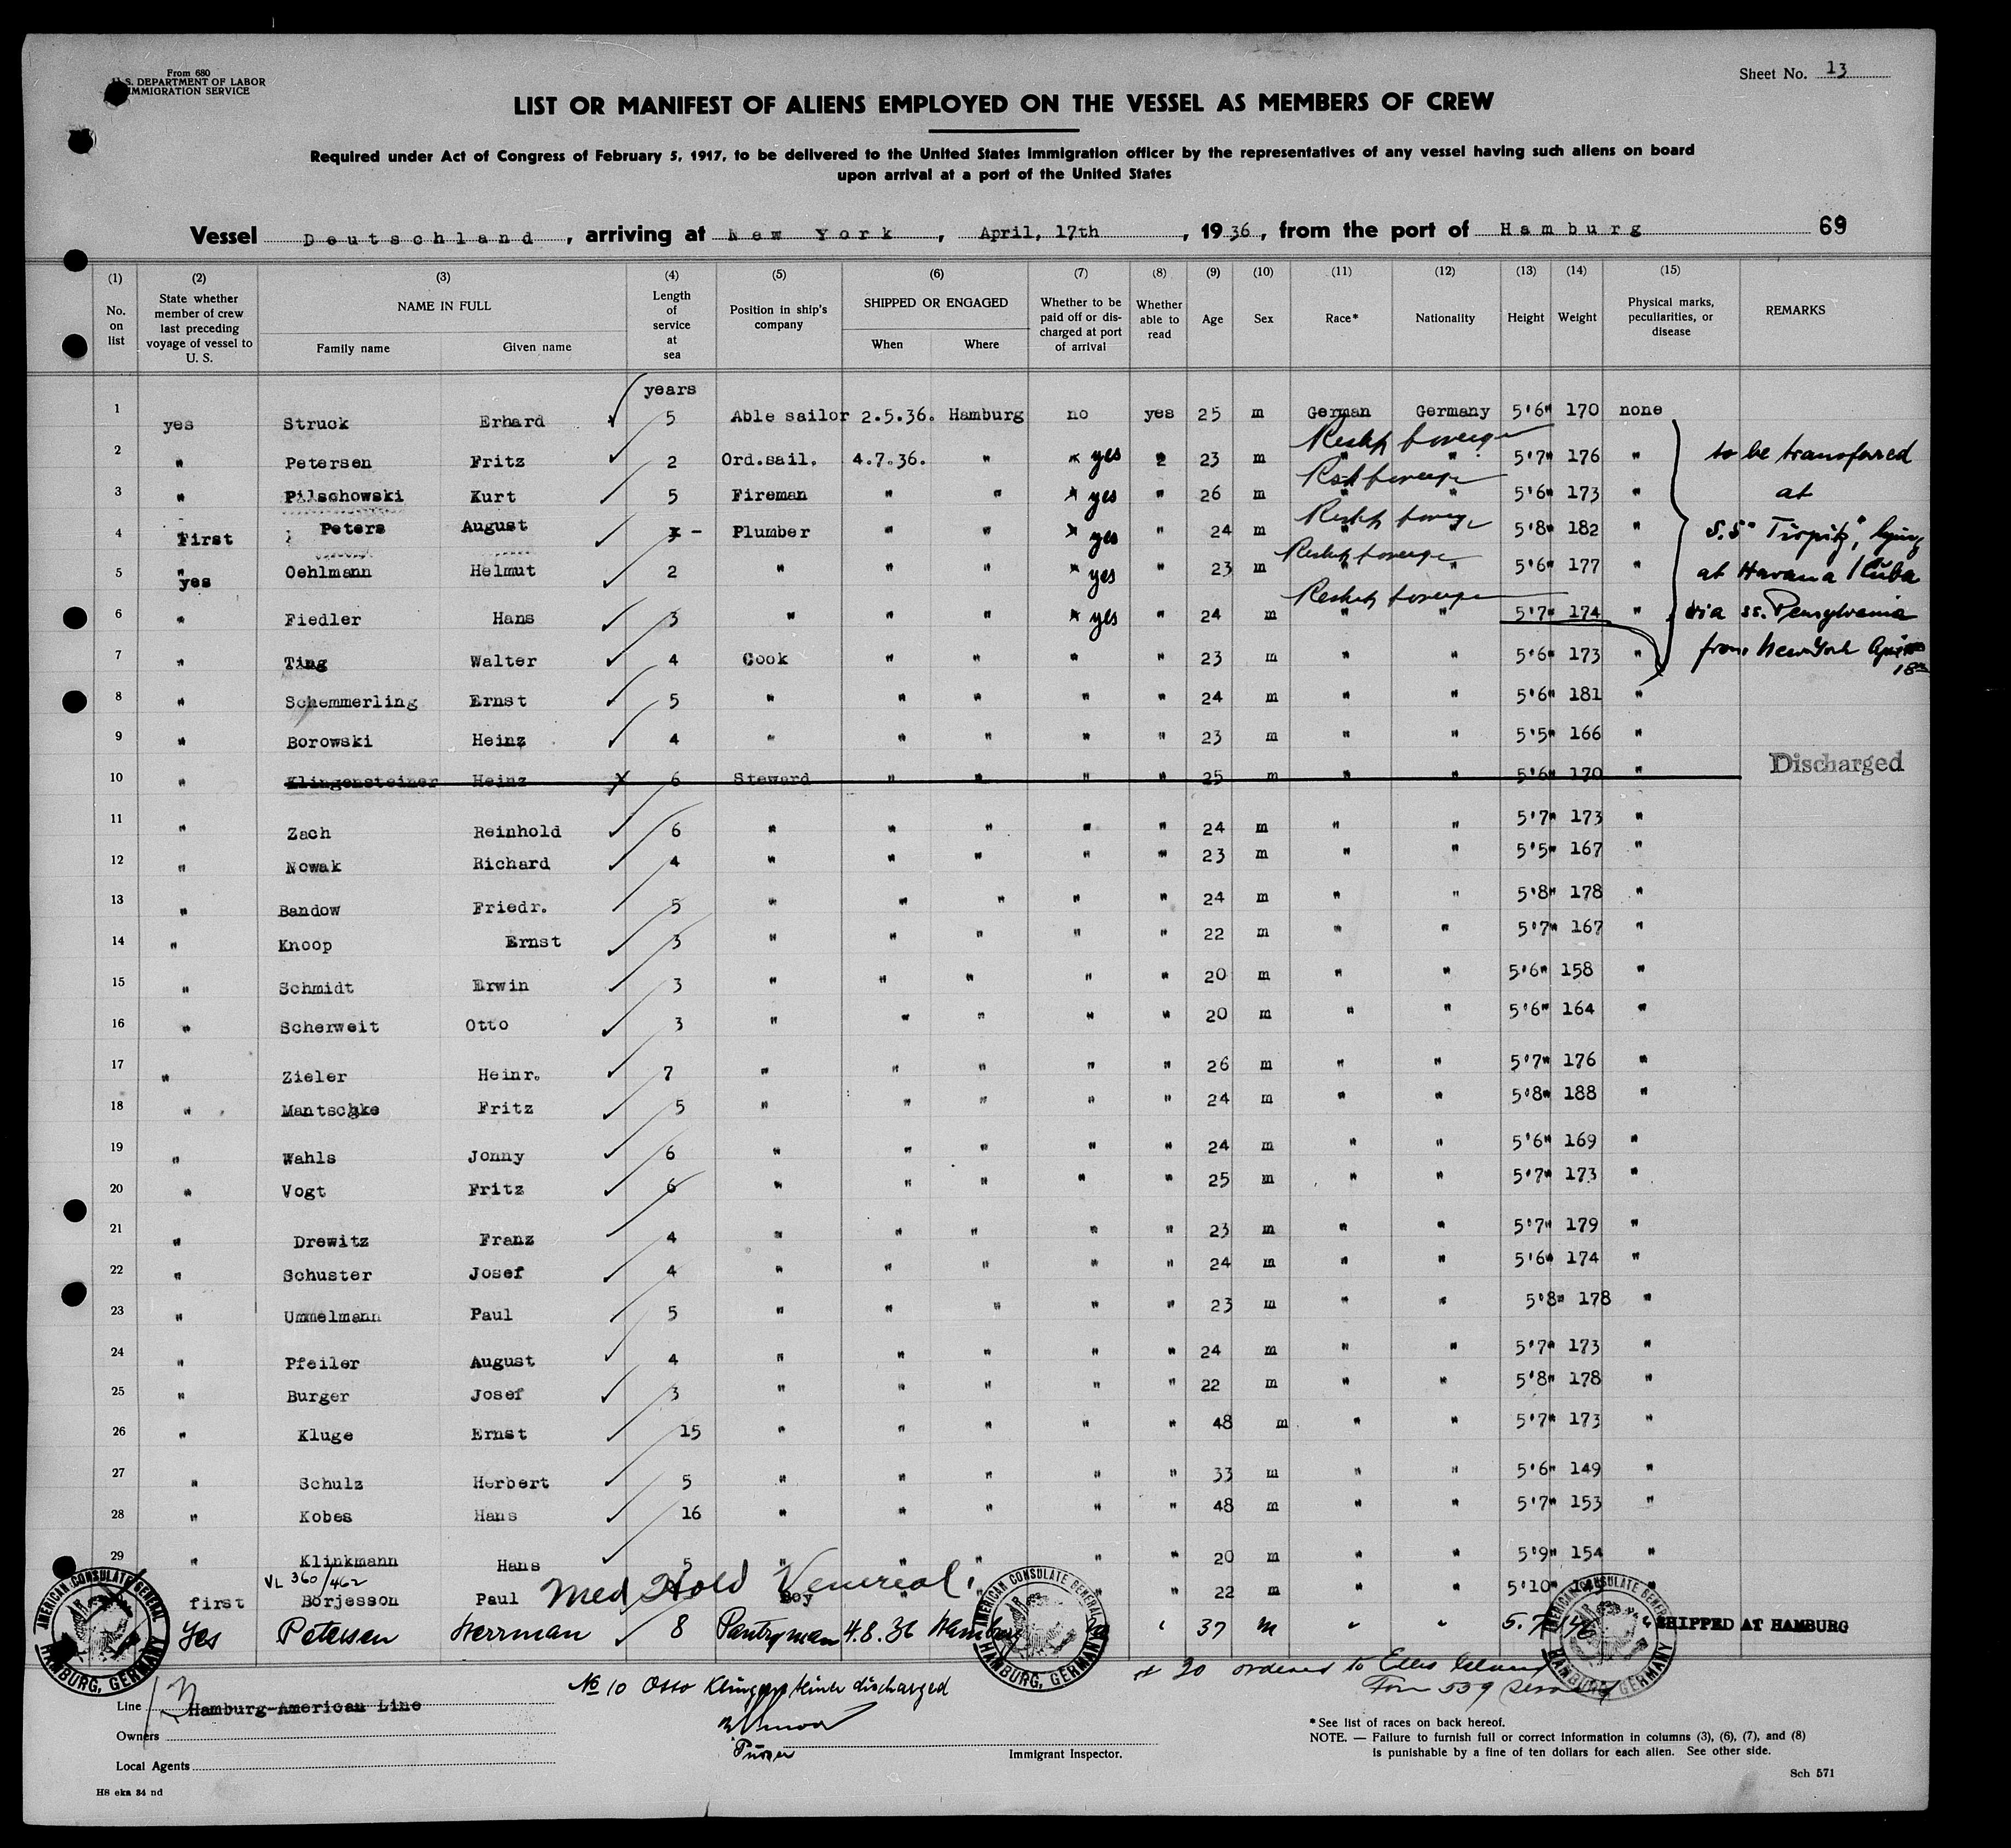 From 680
U. S. DEPARTMENT OF LABOR
IMMIGRATION SERVICE
Sheet No. 13
LIST OR MANIFEST OF ALIENS EMPLOYED ON THE VESSEL AS MEMBERS OF CREW
Required under Act of Congress of February 5, 1917, to be delivered to the United States immigration officer by the representatives of any vessel having such aliens on board
upon arrival at a port of the United States
Vessel Deutschland, arriving at New York, April, 17th, 1936, from the port of Hamburg 69
(1) No. on list (2) State whether member of crew last preceding voyage of vessel to U. S. (3) NAME IN FULL Family name Given name (4) Length of service at sea (5) Position in ship's company (6) SHIPPED OR ENGAGED When Where (7) Whether to be paid off or discharged at port of arrival (8) Whether able to read (9) Age (10) Sex (11) Race* (12) Nationality (13) Height (14) Weight (15) Physical marks, peculiarities, or disease REMARKS
years
1 yes Struck Erhard 5 Able sailor 2.5.36. Hamburg no yes 25 m German Germany 5'6" 170 none
2 " Petersen Fritz 2 Ord.sail. 4.7.36. " yes 23 m " " 5'7" 176 " to be transferred
3 " Pilschowski Kurt 5 Fireman " " yes " 26 m " " 5'6" 173 " at
4 First Peters August - Plumber " " yes " 24 m " " 5'8" 182 " S.S "Tirpitz", lying
5 yes Oehlmann Helmut 2 " " " yes " 23 m " " 5'6" 177 " at Havana / Cuba
6 " Fiedler Hans 3 " " " yes " 24 m " " 5'7" 174 " via ss. Pensylvania
7 " Ting Walter 4 Cook " " " " 23 m " " 5'6" 173 " from New York 18
8 " Schemmerling Ernst 5 " " " " " 24 m " " 5'6" 181 "
9 " Borowski Heinz 4 " " " " " 23 m " " 5'5" 166 "
10 " Klingensteiner Heinz 6 Steward " " " " 25 m " " 5'6" 170 " Discharged
11 " Zach Reinhold 6 " " " " " 24 m " " 5'7" 173 "
12 " Nowak Richard 4 " " " " " 23 m " " 5'5" 167 "
13 " Bandow Friedr. 5 " " " " " 24 m " " 5'8" 178 "
14 " Knoop Ernst 3 " " " " " 22 m " " 5'7" 167 "
15 " Schmidt Erwin 3 " " " " " 20 m " " 5'6" 158 "
16 " Scherweit Otto 3 " " " " " 20 m " " 5'6" 164 "
17 " Zieler Heinr. 7 " " " " " 26 m " " 5'7" 176 "
18 " Mantschke Fritz 5 " " " " " 24 m " " 5'8" 188 "
19 " Wahls Jonny 6 " " " " " 24 m " " 5'6" 169 "
20 " Vogt Fritz 6 " " " " " 25 m " " 5'7" 173 "
21 " Drewitz Franz 4 " " " " " 23 m " " 5'7" 179 "
22 " Schuster Josef 4 " " " " " 24 m " " 5'6" 174 "
23 " Ummelmann Paul 5 " " " " " 23 m " " 5'8" 178 "
24 " Pfeiler August 4 " " " " " 24 m " " 5'7" 173 "
25 " Burger Josef 3 " " " " " 22 m " " 5'8" 178 "
26 " Kluge Ernst 15 " " " " " 48 m " " 5'7" 173 "
27 " Schulz Herbert 5 " " " " " 33 m " " 5'6" 149 "
28 " Kobes Hans 16 " " " " " 48 m " " 5'7" 153 "
29 " Klinkmann Hans 5 " " " " " 20 m " " 5'9" 154 "
VL 360/462
first Borjesson Paul Med Hold Venereal. Boy " " 22 m " " 5'10" "
Yes Petersen Herrman 8 Pantryman 4.8.36 Hamburg " 37 m " " 5.7 SHIPPED AT HAMBURG
AMERICAN CONSULATE GENERAL HAMBURG, GERMANY
AMERICAN CONSULATE GENERAL HAMBURG, GERMANY
AMERICAN CONSULATE GENERAL HAMBURG, GERMANY
No 10 Otto Klingensteiner discharged
30 ordered to Ellis Island
Form 539 served
Purser
Line Hamburg-American Line
Owners
Local Agents
Immigrant Inspector.
* See list of races on back hereof.
NOTE. — Failure to furnish full or correct information in columns (3), (6), (7), and (8)
is punishable by a fine of ten dollars for each alien. See other side.
Sch 571
HS eka 84 nd